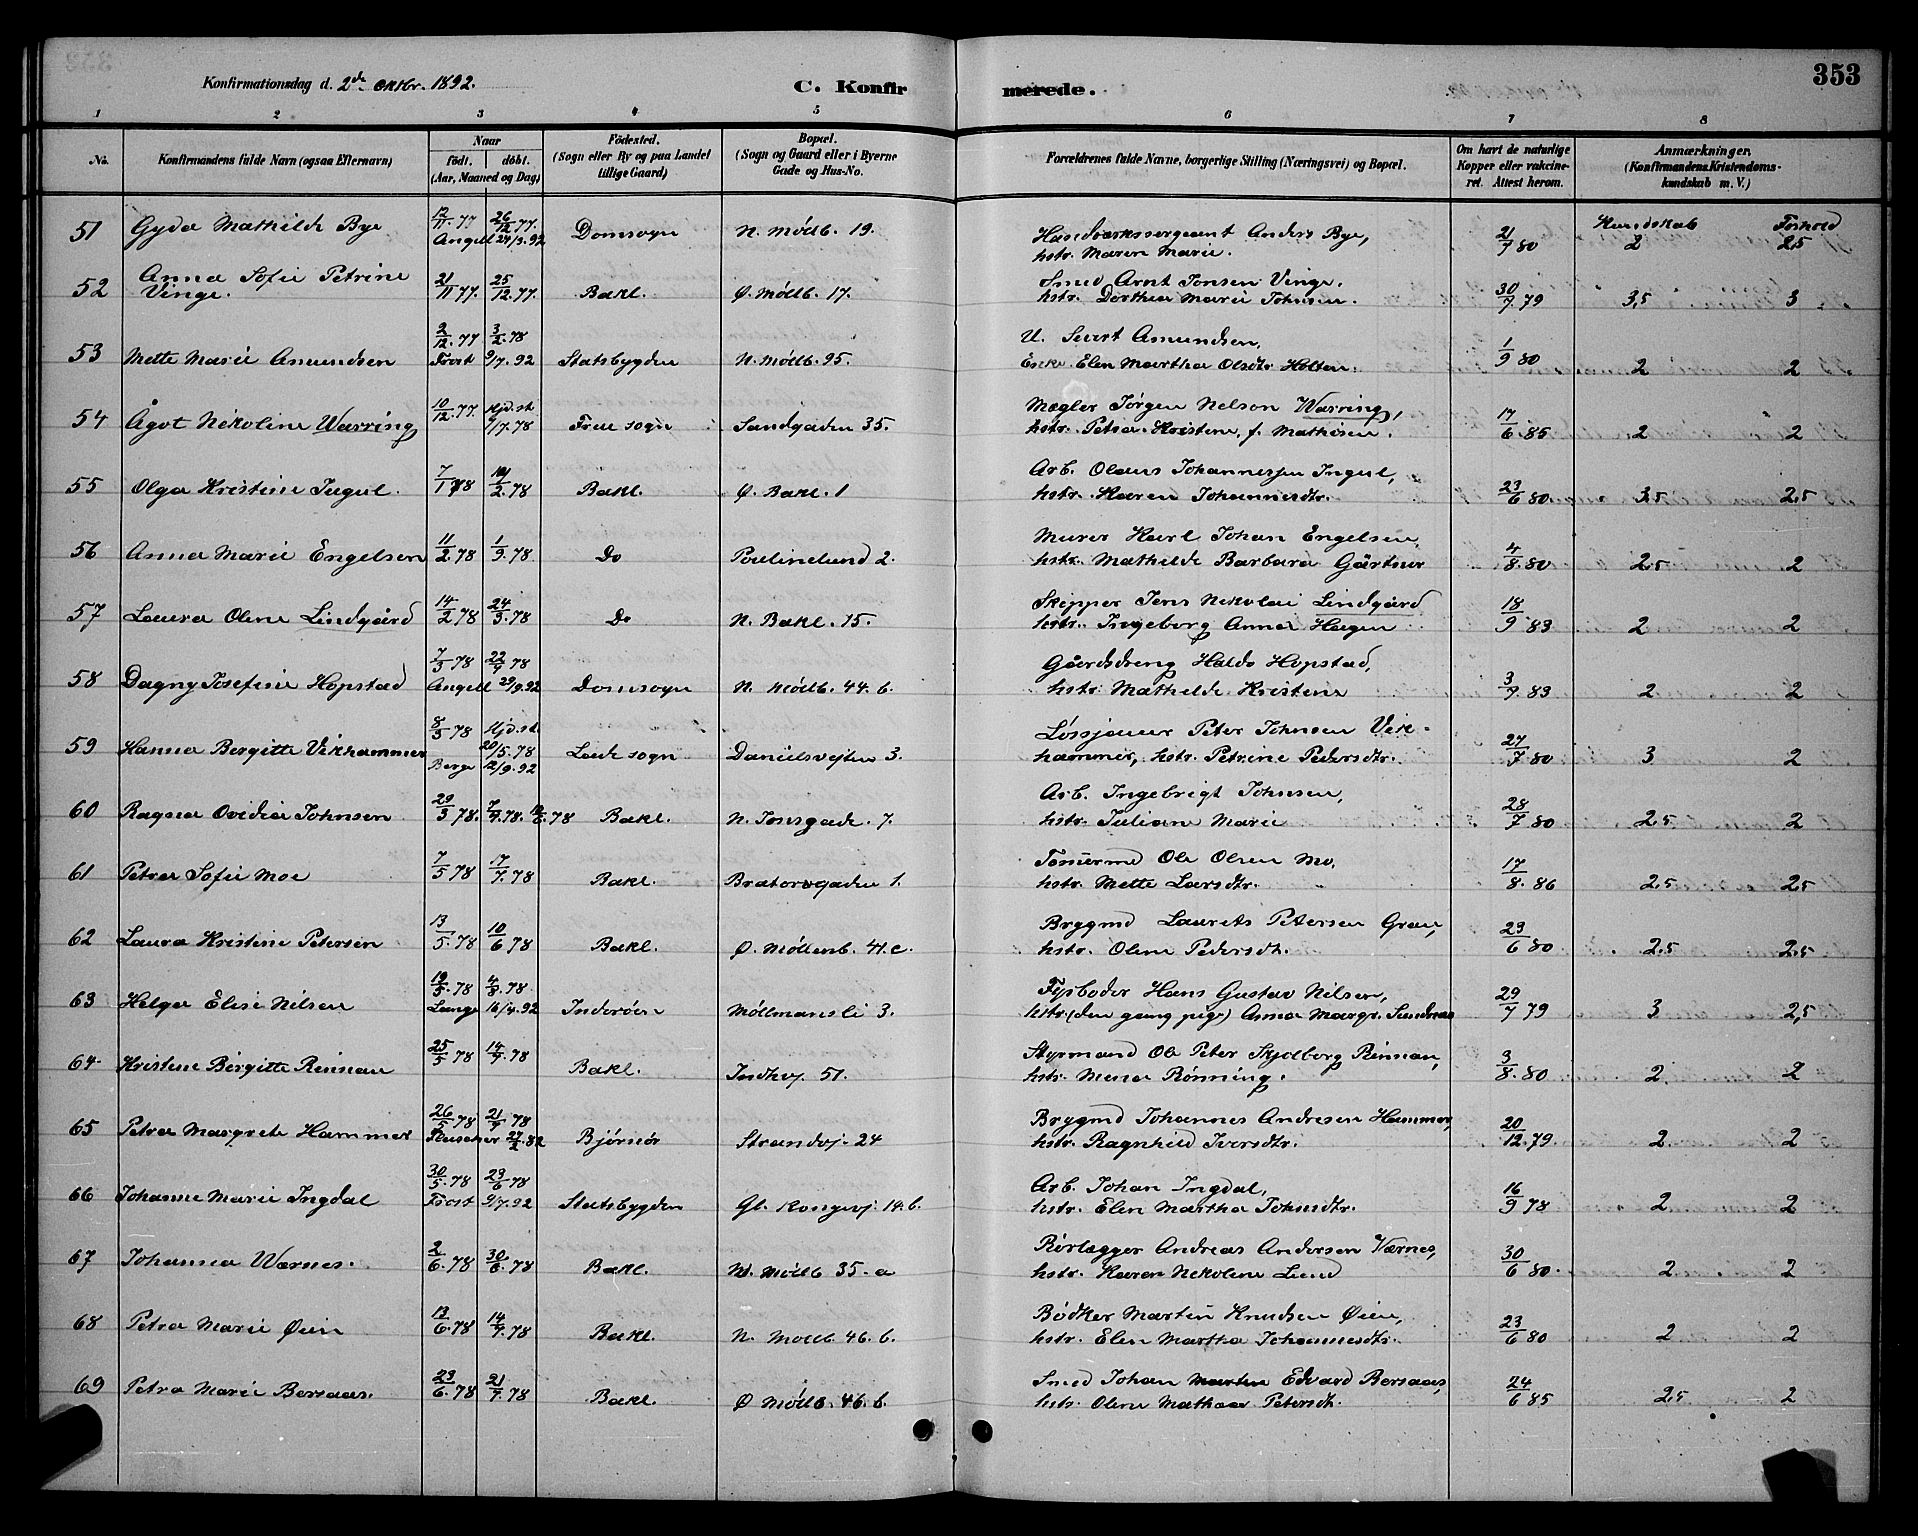 Konfirmationsdag d. 2de Oktbr. 1892.
C. Konfirmerede.
353
1 2 3 4 5 6 7 8
No. Konfirmandens fulde Navn (ogsaa Efternavn) Naar født. døbt. (Aar, Maaned og Dag) Fødested. (Sogn eller By og paa Landet tillige Gaard) Bopæl. (Sogn og Gaard eller i Byerne Gade og Hus-No. Forældrenes fulde Navne, borgerlige Stilling (Næringsvei) og Bopæl. Om havt de naturlige Kopper eller vakcineret. Attest herom. Anmærkninger. (Konfirmandens Kristendomskundskab m. V.)
Kundskab Forhold
51 Gyda Mathilde Bye 12/11.77 26/12.77. Domsogn N. Møllb. 19. Handværkssergeant Anders Bye, 21/7 80 2 2,5
Angell 24/9.92 hstr. Maren Marie.
52 Anna Sofie Petrine Vinge. 21/11 77. 25/12.77. Bakl. Ø. Møllb. 17. Smed Arnt Jonsen Vinge. 30/7.79 3,5 3
hstr. Dorthea Marie Johnsen.
53 Mette Marie Amundsen 2/12.77 3/2.78 Statsbygden N. Møllb. 95. U. Sivert Amundsen, 1/9 80 2 2
Frost 9/7.92 Enke Elen Martha Olsdtr Holten.
54 Ågot Nikoline Warring 10/12.77. Hjd. st 7/7.78 Frue sogn Sandgaden 35. Mægler Jørgen Nelson Warring, 17/6.85 2 2
hstr. Petra Kristine, f. Mathisen.
55 Olga Kristine Ingul. 7/1 78 /2.78 Bakl. Ø. Bakl. 1 Arb. Olaus Johannessen Ingul, 23/6 80 3,5 2,5
hstr. Karen Johannesdtr.
56 Anna Marie Engelsen 11/2.78 1/9.78. Do Poulinelund 2. Murer Karl Johan Engelsen, 4/8.80 2,5 2
hstr. Mathilde Barbara Gärtner
57 Laura Oline Lindgård 14/2 78 24/3.78 Do N. Bakl. 15. Skipper Jens Nikolai Lindgård 18/9 83 2 2
hstr. Ingeborg Anna Hagen
58 Dagny Josefine Hopstad 7/3 78 22/4 78 Domsogn N. Møllb. 44. b. Gårdsdreng Haldo Hopstad, 3/7.83 2 2
Angell 29/9.92 hstr. Mathilde Kristine
59 Hanna Bergitte Vikhammer 8/3 78 Hjd. st 20/5.78 Lade sogn Danielsvejten 3. Løssjauer Peter Johnsen Vikhammer, 27/7 80 3 2
Berge 12/9.92 hstr. Petrine Pedersdtr.
60 Ragna Ovidia Johnsen 29/3 78. 7/4.78. 78 Bakl. N. Jonsgade. 7. Arb. Ingebrigt Johnsen, 28/7 80 2,5 2
hstr. Juliane Marie
61 Petra Sofie Moe 7/5 78 17/7.78 Bakl. Bratørsgaden 1. Tømermd Ole Olsen Mo, 17/8.86 2,5 2,5
hstr. Mette Larsdtr.
62 Laura Kristine Petersen 13/5.78 10/6 78 Bakl. Ø. Møllenb. 41. c. Brygmd Laurits Petersen Gran, 23/6 80 2,5 2,5
hstr. Oline Pedersdtr.
63 Helga Elise Nilsen 19/5.78 4/8.78. Inderøen Møllmansli 3. Fyrbøder Hans Gustav Nilsen, 29/7 79 3 2,5
Lange 16/4.92 hstr. (den gang pige) Anna Margr. Sundnes
64 Kristine Birgitte Rinnan 25/5 78 14/7.78 Bakl. Indhvj. 51. Styrmand Ole Peter Skjelborg Rinnan, 3/8.80 2. 2
hstr. Mina Rønning.
65 Petra Margrete Hammer 26/5 78 21/7.78 Bjørnør Strandvj. 24 Brygmd Johannes Andresen Hammer, 20/12.79. 2 2
27/2.82 hstr. Ragnhild Iversdtr.
66 Johanne Marie Ingdal 30/5.78 23/6 78 Statsbygden Gl. Kongevj. 14. b. Arb. Johan Ingdal, 16/9 78 2 2
Frost 9/7.92 hstr. Elen Martha Johnsdtr.
67 Johanna Wærnes. 2/6.78 30/6.78 Bakl. N. Møllb 35. a Rørlægger Andreas Andersen Værnes, 30/6 80. 2 2
hstr. Karen Nikoline Lund
68 Petra Marie Øien 13/6.78 14/7.78 Bakl. N. Møllb. 46. b. Bødker Martin Knudsen Øien, 23/6 80 2 2
hstr. Elen Martha Johannesdtr.
69 Petra Marie Borsaas. 23/6.78 21/7.78 Bakl. Ø Møllb. 46. b. Smed Johan Edvard Borsaas, 24/6 85 2,5 2
hstr. Oline Mathea Petersdt.